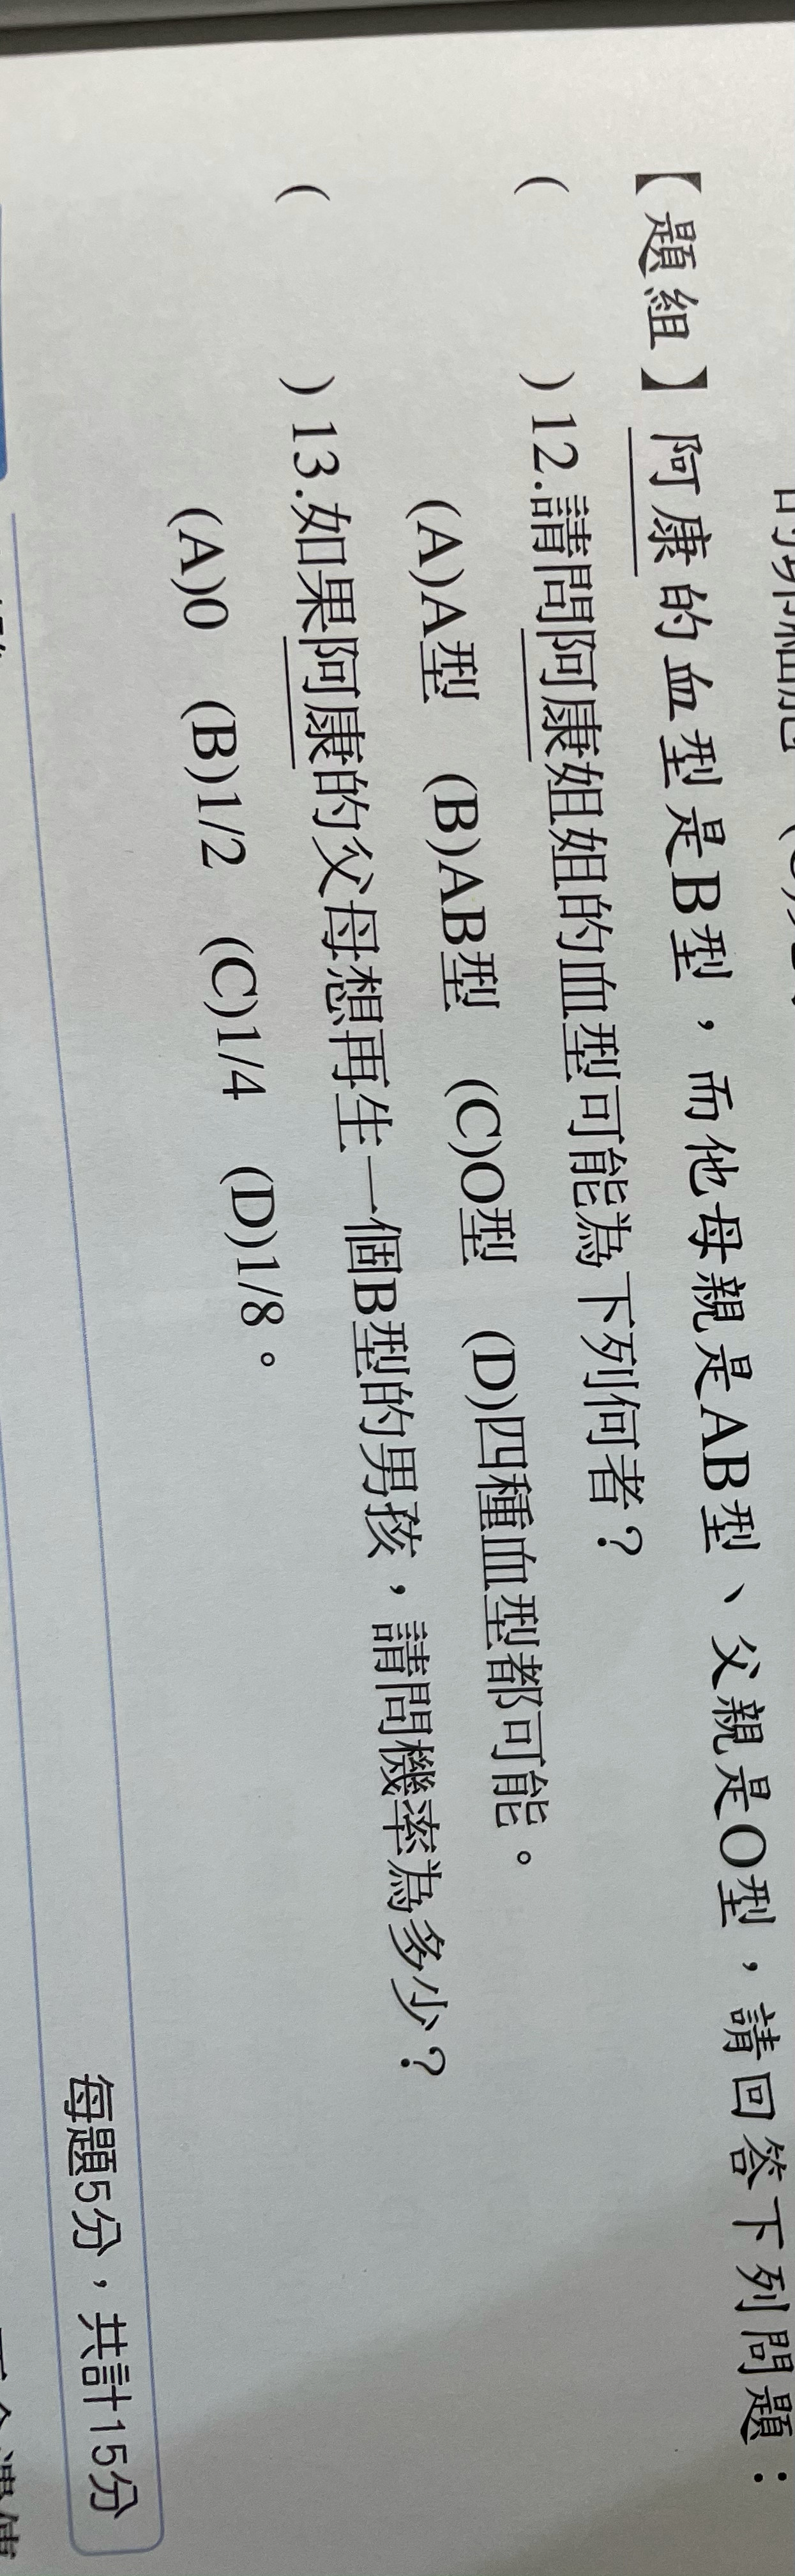 【題組】阿康的血型是B型，而他母親是AB型、父親是O型，請回答下列問題：
(　　)12.請問阿康姐姐的血型可能為下列何者？
(A)A型　(B)AB型　(C)O型　(D)四種血型都可能。
(　　)13.如果阿康的父母想再生一個B型的男孩，請問機率為多少？
(A)0　(B)1/2　(C)1/4　(D)1/8。
每題5分，共計15分